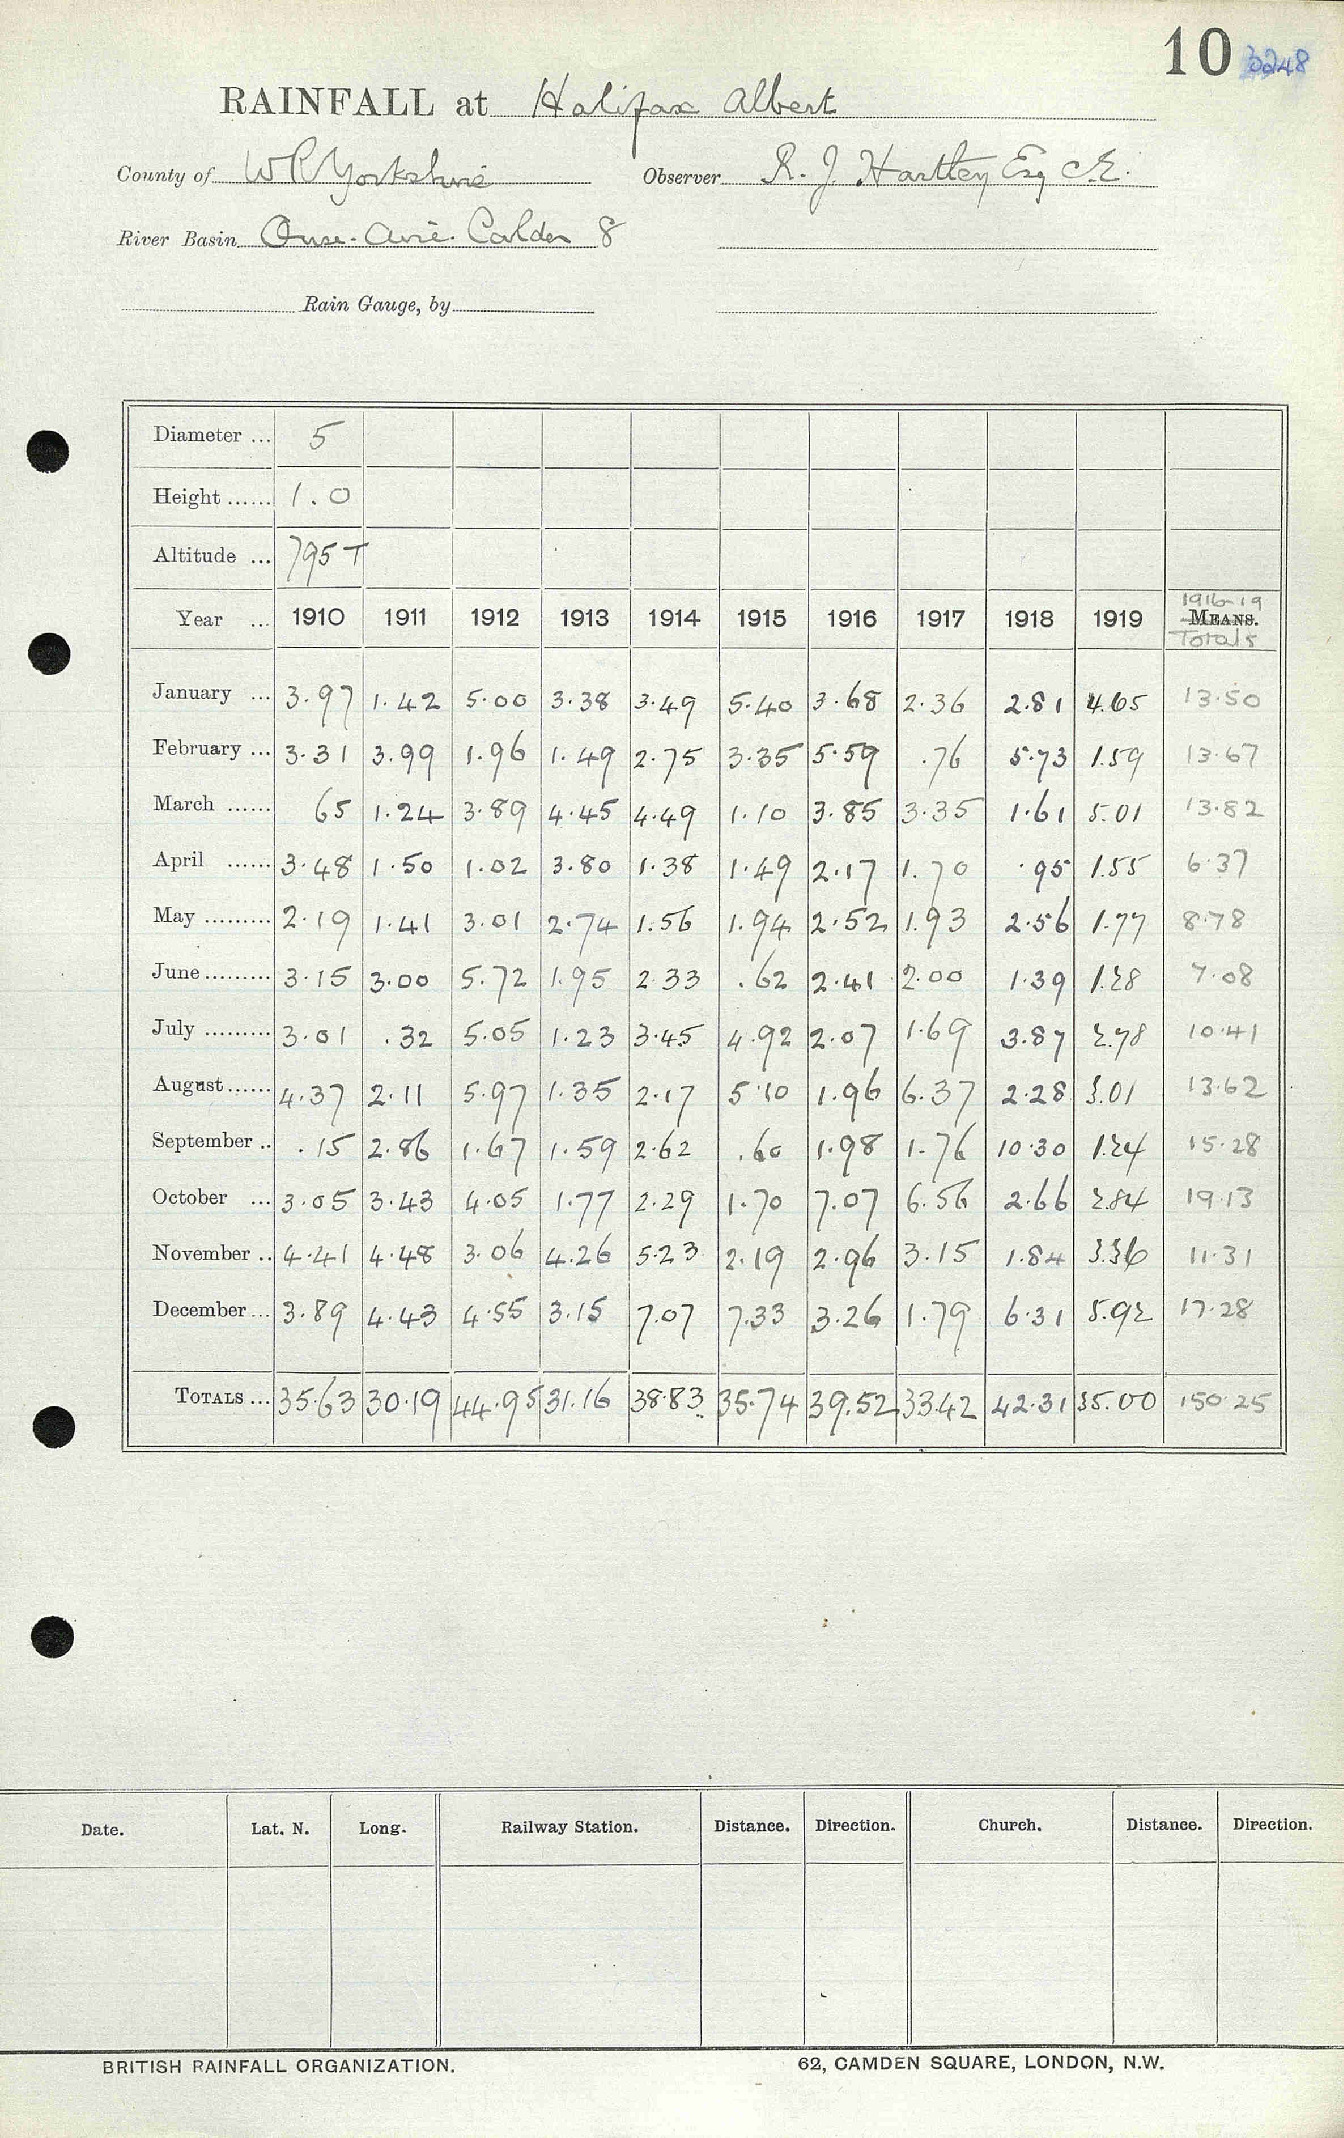 10 3248
RAINFALL at Halifax Albert
County of WR Yorkshire Observer R. J. Hartley Esq C.E.
River Basin Ouse. Aire. Calder 8
Rain Gauge, by
Diameter ... 5
Height ...... 1.0
Altitude ... 795 T
Year ... 1910 1911 1912 1913 1914 1915 1916 1917 1918 1919 1916-19 MEANS. Totals
January ... 3.97 1.42 5.00 3.38 3.49 5.40 3.68 2.36 2.81 4.65 13.50
February ... 3.31 3.99 1.96 1.49 2.75 3.35 5.59 .76 5.73 1.59 13.67
March ...... 65 1.24 3.89 4.45 4.49 1.10 3.85 3.35 1.61 5.01 13.82
April ...... 3.48 1.50 1.02 3.80 1.38 1.49 2.17 1.70 .95 1.55 6.37
May ......... 2.19 1.41 3.01 2.74 1.56 1.94 2.52 1.93 2.56 1.77 8.78
June ......... 3.15 3.00 5.72 1.95 2.33 .62 2.41 2.00 1.39 1.28 7.08
July ......... 3.01 .32 5.05 1.23 3.45 4.92 2.07 1.69 3.87 2.78 10.41
August ...... 4.37 2.11 5.97 1.35 2.17 5.10 1.96 6.37 2.28 3.01 13.62
September .. .15 2.86 1.67 1.59 2.62 .60 1.98 1.76 10.30 1.24 15.28
October ... 3.05 3.43 4.05 1.77 2.29 1.70 7.07 6.56 2.66 2.84 19.13
November .. 4.41 4.48 3.06 4.26 5.23 2.19 2.96 3.15 1.84 3.36 11.31
December ... 3.89 4.43 4.55 3.15 7.07 7.33 3.26 1.79 6.31 5.92 17.28
TOTALS ... 35.63 30.19 44.95 31.16 38.83 35.74 39.52 33.42 42.31 35.00 150.25
Date. Lat. N. Long. Railway Station. Distance. Direction. Church. Distance. Direction.
BRITISH RAINFALL ORGANIZATION. 62, CAMDEN SQUARE, LONDON, N.W.